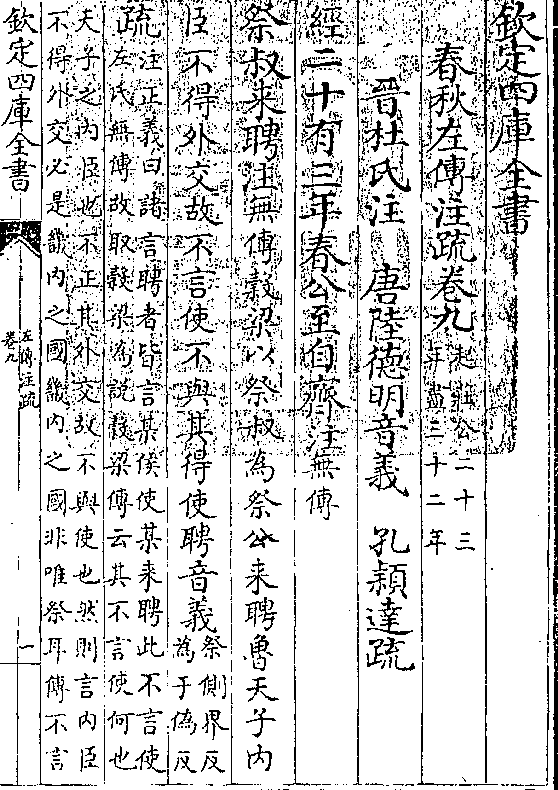 欽定四庫全書
春秋左傳注疏卷九
起莊公二十三
年盡三十二年
晉杜氏注　唐陸德明音義　孔穎達疏
經二十有三年春公至自齊注無傳
祭叔来聘注無傳穀梁以祭叔為祭公来聘魯天子内
臣不得外交故不言使不與其得使聘音義
祭側界反
為于偽反
疏
注正義曰諸言聘者皆言某侯使某来聘此不言使
左氏無傳故取穀梁為説穀梁傳云其不言使何也
天子之内臣也不正其外交故不與使也然則言内臣
不得外交必是畿内之國畿内之國非唯祭耳傳不言
欽定四庫全書
左傳注疏
卷九
一